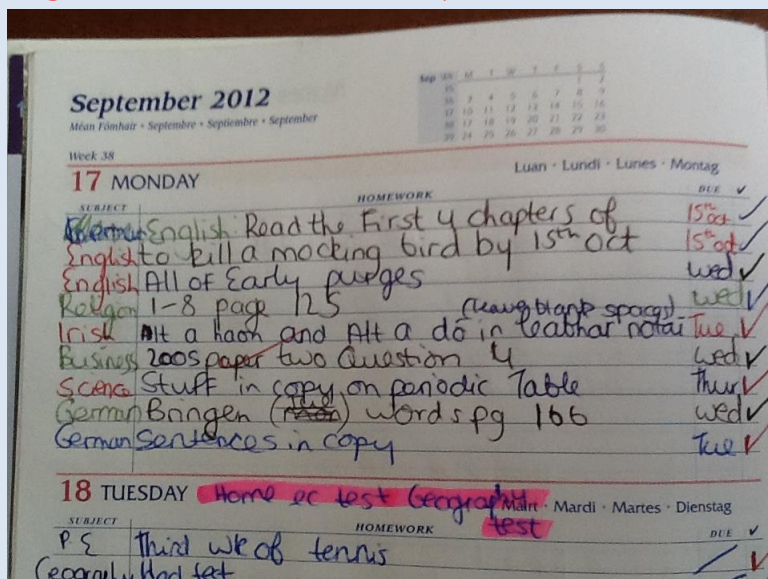 September 2012
Meán Fómhair • Septembre • Septiembre • September
Sep M T W T F S S
1 2
3 4 5 6 7 8 9
10 11 12 13 14 15 16
17 18 19 20 21 22 23
24 25 26 27 28 29 30
Week 38
Luan • Lundi • Lunes • Montag
17 MONDAY
SUBJECT HOMEWORK DUE ✓
English Read the First 4 chapters of 15th oct ✓
English to kill a mocking bird by 15th Oct 15th oct ✓
English All of Early purges wed ✓
Religon 1-8 page 125 (leave blank spaces) wed ✓
Irish Alt a haon and Alt a dó in leabhar notaí Tue ✓
Business 2005 paper two Question 4 wed ✓
Science Stuff in copy on periodic Table Thur ✓
German Bringen () words pg 166 wed ✓
German Sentences in copy Tue ✓
18 TUESDAY Home ec test Geography Máirt • Mardi • Martes • Dienstag
test
SUBJECT HOMEWORK DUE ✓
P.E Third wk of tennis ✓
Geography Had test